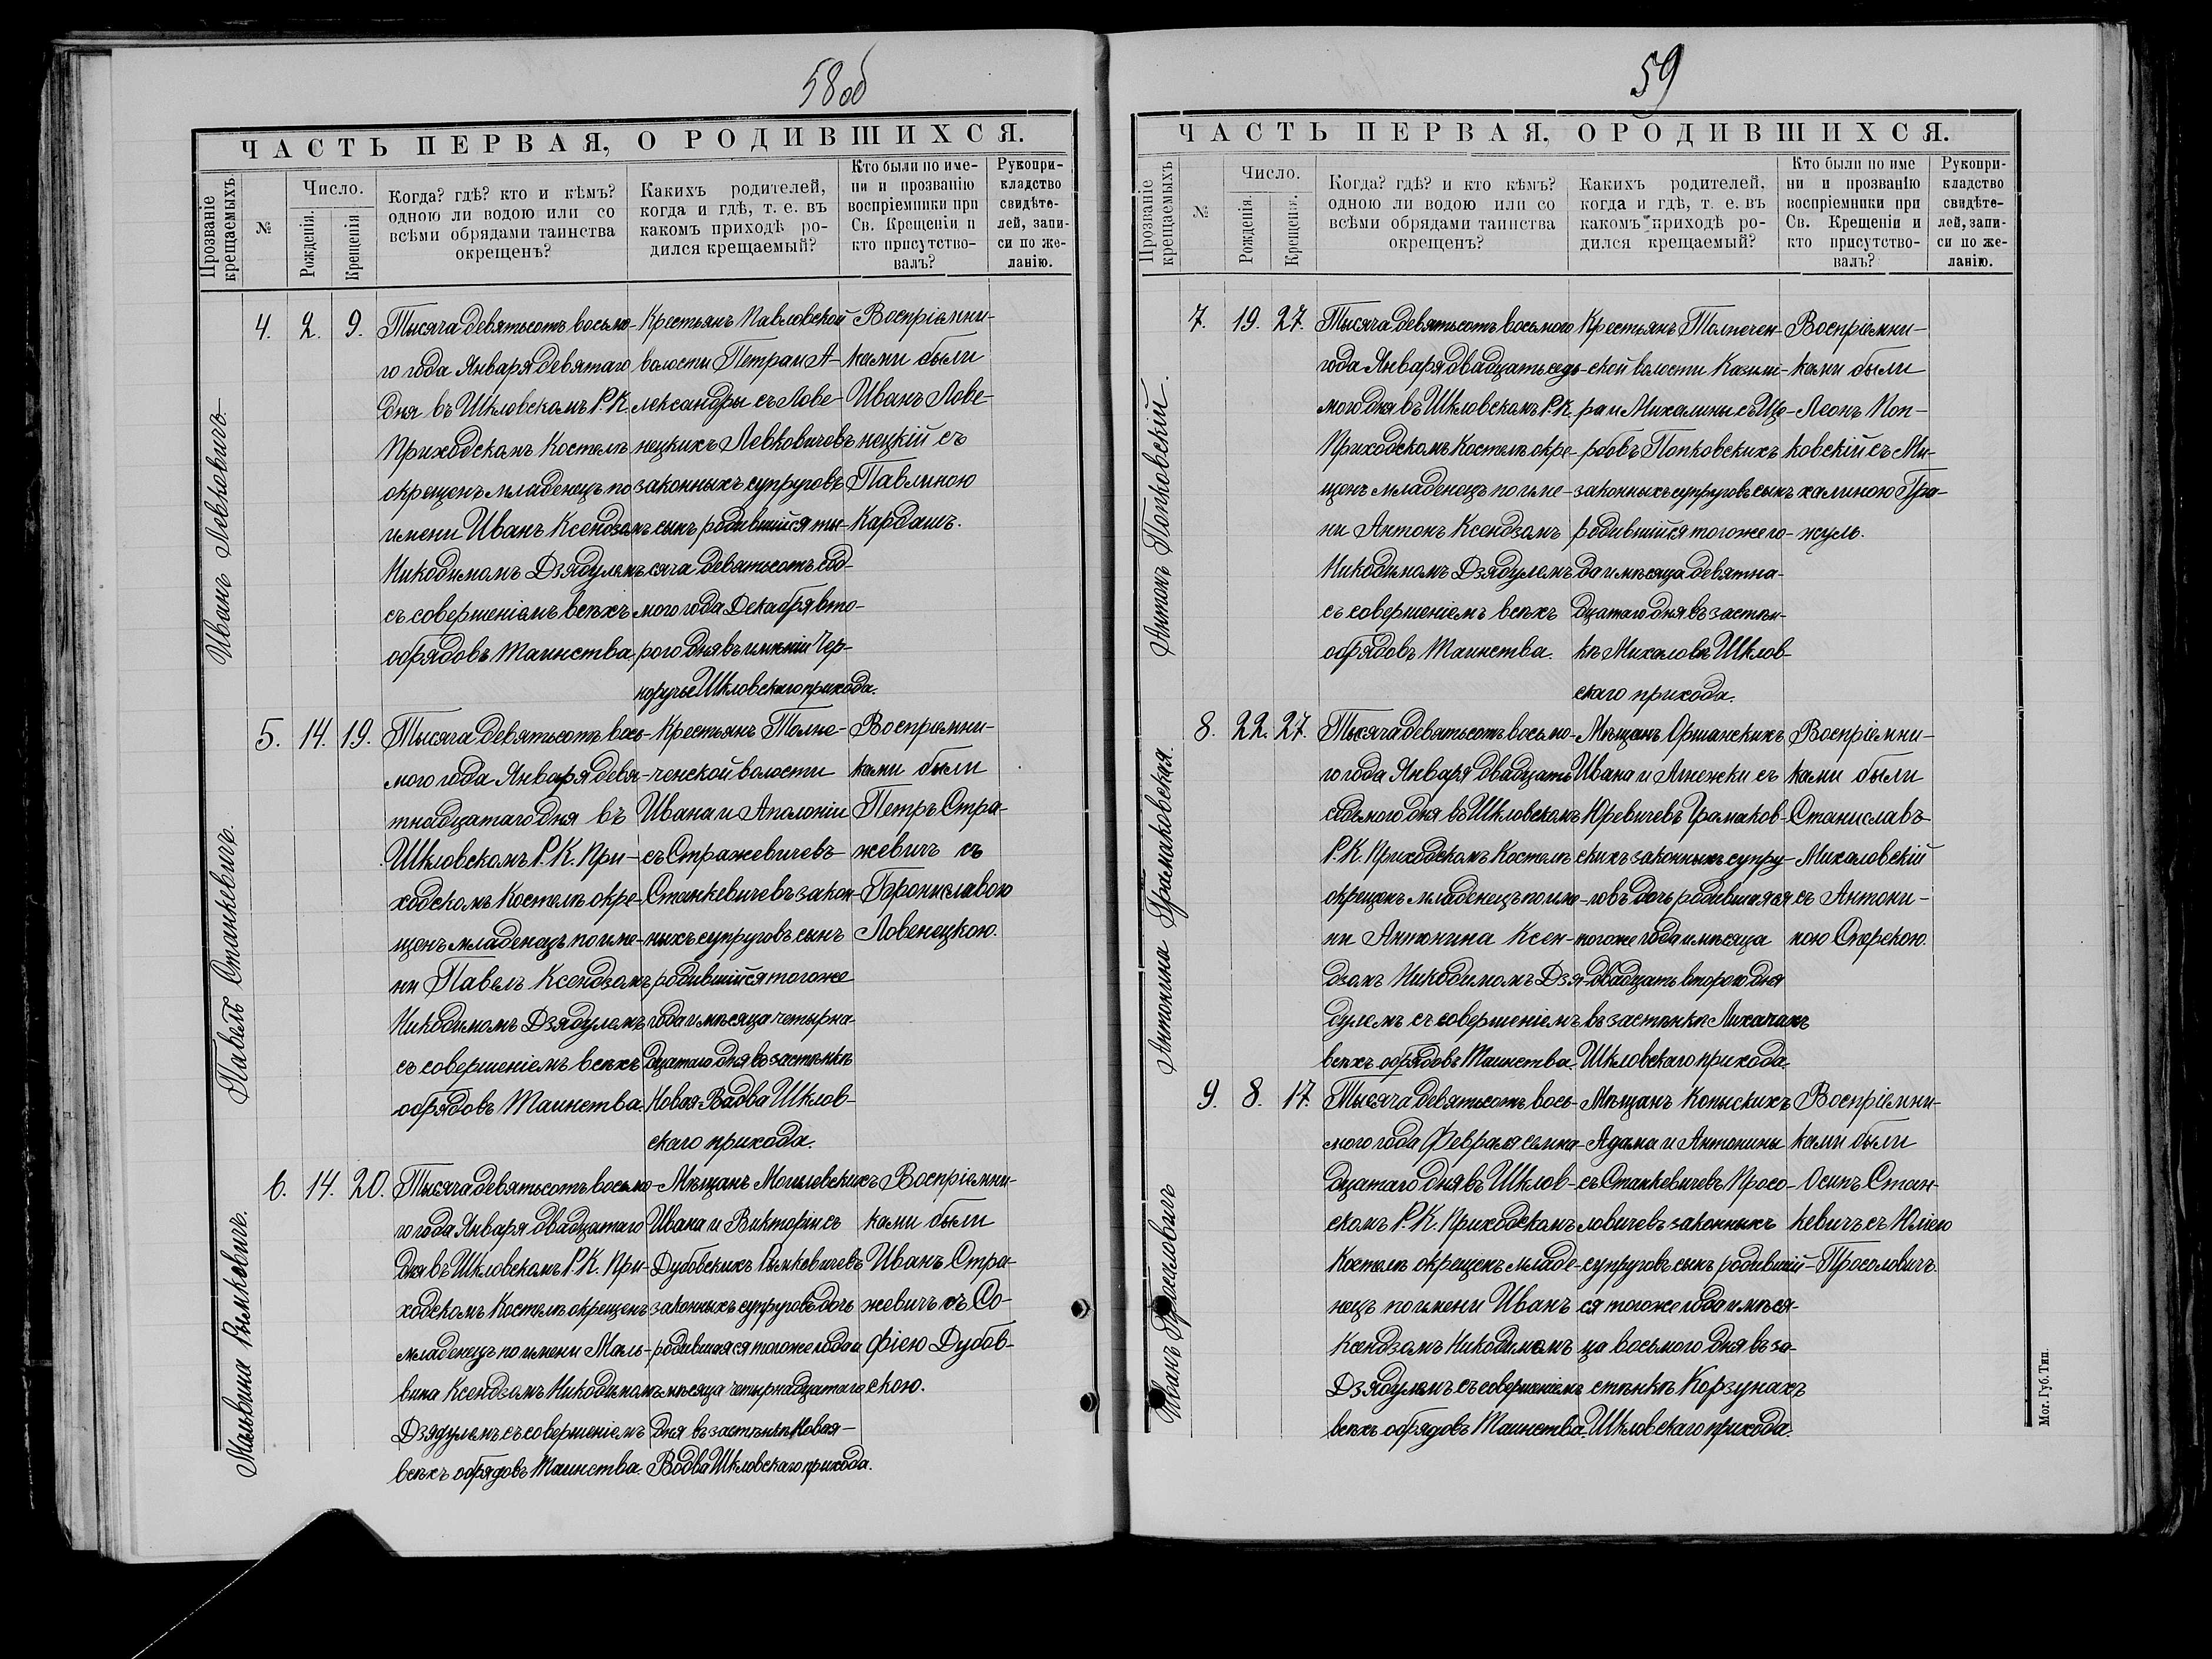 58 об
ЧАСТЬ ПЕРВАЯ, О РОДИВШИХСЯ.
Прозваніе крещаемыхъ.
№
Число.
Рожденія.
Крещенія
Когда? гдѣ? кто и кѣмъ?
одною ли водою или со
всѣми обрядами таинства
окрещенъ?
Какихъ родителей,
когда и гдѣ, т. е. въ
какомъ приходѣ ро-
дился крещаемый?
Кто были по име-
ни и прозванію
воспріемники при
Св. Крещеніи и
кто присутство-
валъ?
Рукопри-
кладство
свидѣте-
лей, запи-
си по же-
ланію.
Иванъ Левковичъ.
4. 2. 9.
Тысяча девятьсотъ восьмо-
го года Января девятаго
дня въ Шкловскомъ Р. К.
Приходскомъ Костелѣ
окрещенъ младенецъ по
имени Иванъ Ксендзомъ
Никодимомъ Дзядулемъ
съ совершеніемъ всѣхъ
обрядовъ Таинства.
Крестьянъ Павловской
волости Петра и А-
лександры съ Лове-
нецкихъ Левковичовъ
законныхъ супруговъ
сынъ родившійся ты-
сяча девятьсотъ седь-
мого года Декабря вто-
рого дня въ имѣніи Чер-
норучье Шкловскаго прихода.
Воспріемни-
ками были
Иванъ Лове-
нецкій съ
Павлиною
Кардашъ.
Павелъ Станкевичъ.
5. 14. 19.
Тысяча девятьсотъ вось-
мого года Января девя-
тнадцатаго дня въ
Шкловскомъ Р. К. При-
ходскомъ Костелѣ окре-
щенъ младенецъ по име-
ни Павелъ Ксендзомъ
Никодимомъ Дзядулемъ
съ совершеніемъ всѣхъ
обрядовъ Таинства.
Крестьянъ Толпе-
ченской волости
Ивана и Аполоніи
съ Стражевичевъ
Станкевичевъ закон-
ныхъ супруговъ сынъ
родившійся тогоже
года и мѣсяца четырна-
дцатаго дня въ застѣнкѣ
Новая-Вадва Шклов-
скаго прихода.
Воспріемни-
ками были
Петръ Стра-
жевичъ съ
Брониславою
Ловенецкою.
Мальвина Рымкевичъ.
6. 14. 20.
Тысяча девятьсотъ восьмо-
го года Января двадцатаго
дня въ Шкловскомъ Р. К. При-
ходскомъ Костелѣ окрещенъ
младенецъ по имени Маль-
вина Ксендзомъ Никодимомъ
Дзядулемъ съ совершеніемъ
всѣхъ обрядовъ Таинства.
Мѣщанъ Могилевскихъ
Ивана и Викторіи съ
Дубовскихъ Рымкевичевъ
законныхъ супруговъ дочь
родившаяся тогоже года и
мѣсяца четырнадцатаго
дня въ застѣнкѣ Новая-
Водва Шкловскаго прихода.
Воспріемни-
ками были
Иванъ Стра-
жевичъ съ Со-
фіею Дубов-
скою.
59
ЧАСТЬ ПЕРВАЯ, О РОДИВШИХСЯ.
Прозваніе крещаемыхъ
№
Число.
Рожденія.
Крещенія.
Когда? гдѣ? и кто кѣмъ?
одною ли водою или со
всѣми обрядами таинства
окрещенъ?
Какихъ родителей,
когда и гдѣ, т. е. въ
какомъ приходѣ ро-
дился крещаемый?
Кто были по име
ни и прозванію
воспріемники при
Св. Крещеніи и
кто присутство-
валъ?
Рукопри-
кладство
свидѣте-
лей, запи-
си по же-
ланію.
Антонъ Попковскій.
7. 19. 27.
Тысяча девятьсотъ восьмого
года Января двадцать седь-
мого дня въ Шкловскомъ Р. К.
Приходскомъ Костелѣ окре-
щенъ младенецъ по име-
ни Антонъ Ксендзомъ
Никодимомъ Дзядулемъ
съ совершеніемъ всѣхъ
обрядовъ Таинства.
Крестьянъ Толпечен-
ской волости Казими-
ра и Михалины съ Ще-
рбовъ Попковскихъ
законныхъ супруговъ сынъ
родившійся тогоже го-
да и мѣсяца девятна-
дцатаго дня въ застѣн-
кѣ Михаловѣ Шклов-
скаго прихода.
Воспріемни-
ками были
Леонъ Поп-
ковскій съ Ми-
халиною Гра-
жуль.
Антонина Грамаковская.
8. 22. 27.
Тысяча девятьсотъ восьмо-
го года Января двадцать
седьмого дня въ Шкловскомъ
Р. К. Приходскомъ Костелѣ
окрещенъ младенецъ по име-
ни Антонина Ксен-
дзомъ Никодимомъ Дзя-
дулемъ съ совершеніемъ
всѣхъ обрядовъ Таинства.
Мѣщанъ Оршанскихъ
Ивана и Агнежки съ
Юревичевъ Грамаков-
скихъ законныхъ супру-
говъ дочь родившаяся
тогоже года и мѣсяца
двадцать второго дня
въ застѣнкѣ Лихачахъ
Шкловскаго прихода.
Воспріемни-
ками были
Станиславъ
Михаловскій
съ Антони-
ною Сперскою.
Иванъ Просоловичъ
9. 8. 17.
Тысяча девятьсотъ вось-
мого года Февраля семна-
дцатаго дня въ Шклов-
скомъ Р. К. Приходскомъ
Костелѣ окрещенъ младе-
нецъ по имени Иванъ
Ксендзомъ Никодимомъ
Дзядулемъ съ совершеніемъ
всѣхъ обрядовъ Таинства.
Мѣщанъ Копыскихъ
Адама и Антонины
съ Станкевичевъ Просо-
ловичевъ законныхъ
супруговъ сынъ родившій-
ся тогоже года и мѣся-
ца восьмого дня въ за-
стѣнкѣ Корзунахъ
Шкловскаго прихода.
Воспріемни-
ками были
Осипъ Стан-
кевичъ съ Юліею
Просоловичъ.
Мог. Губ. Тип.